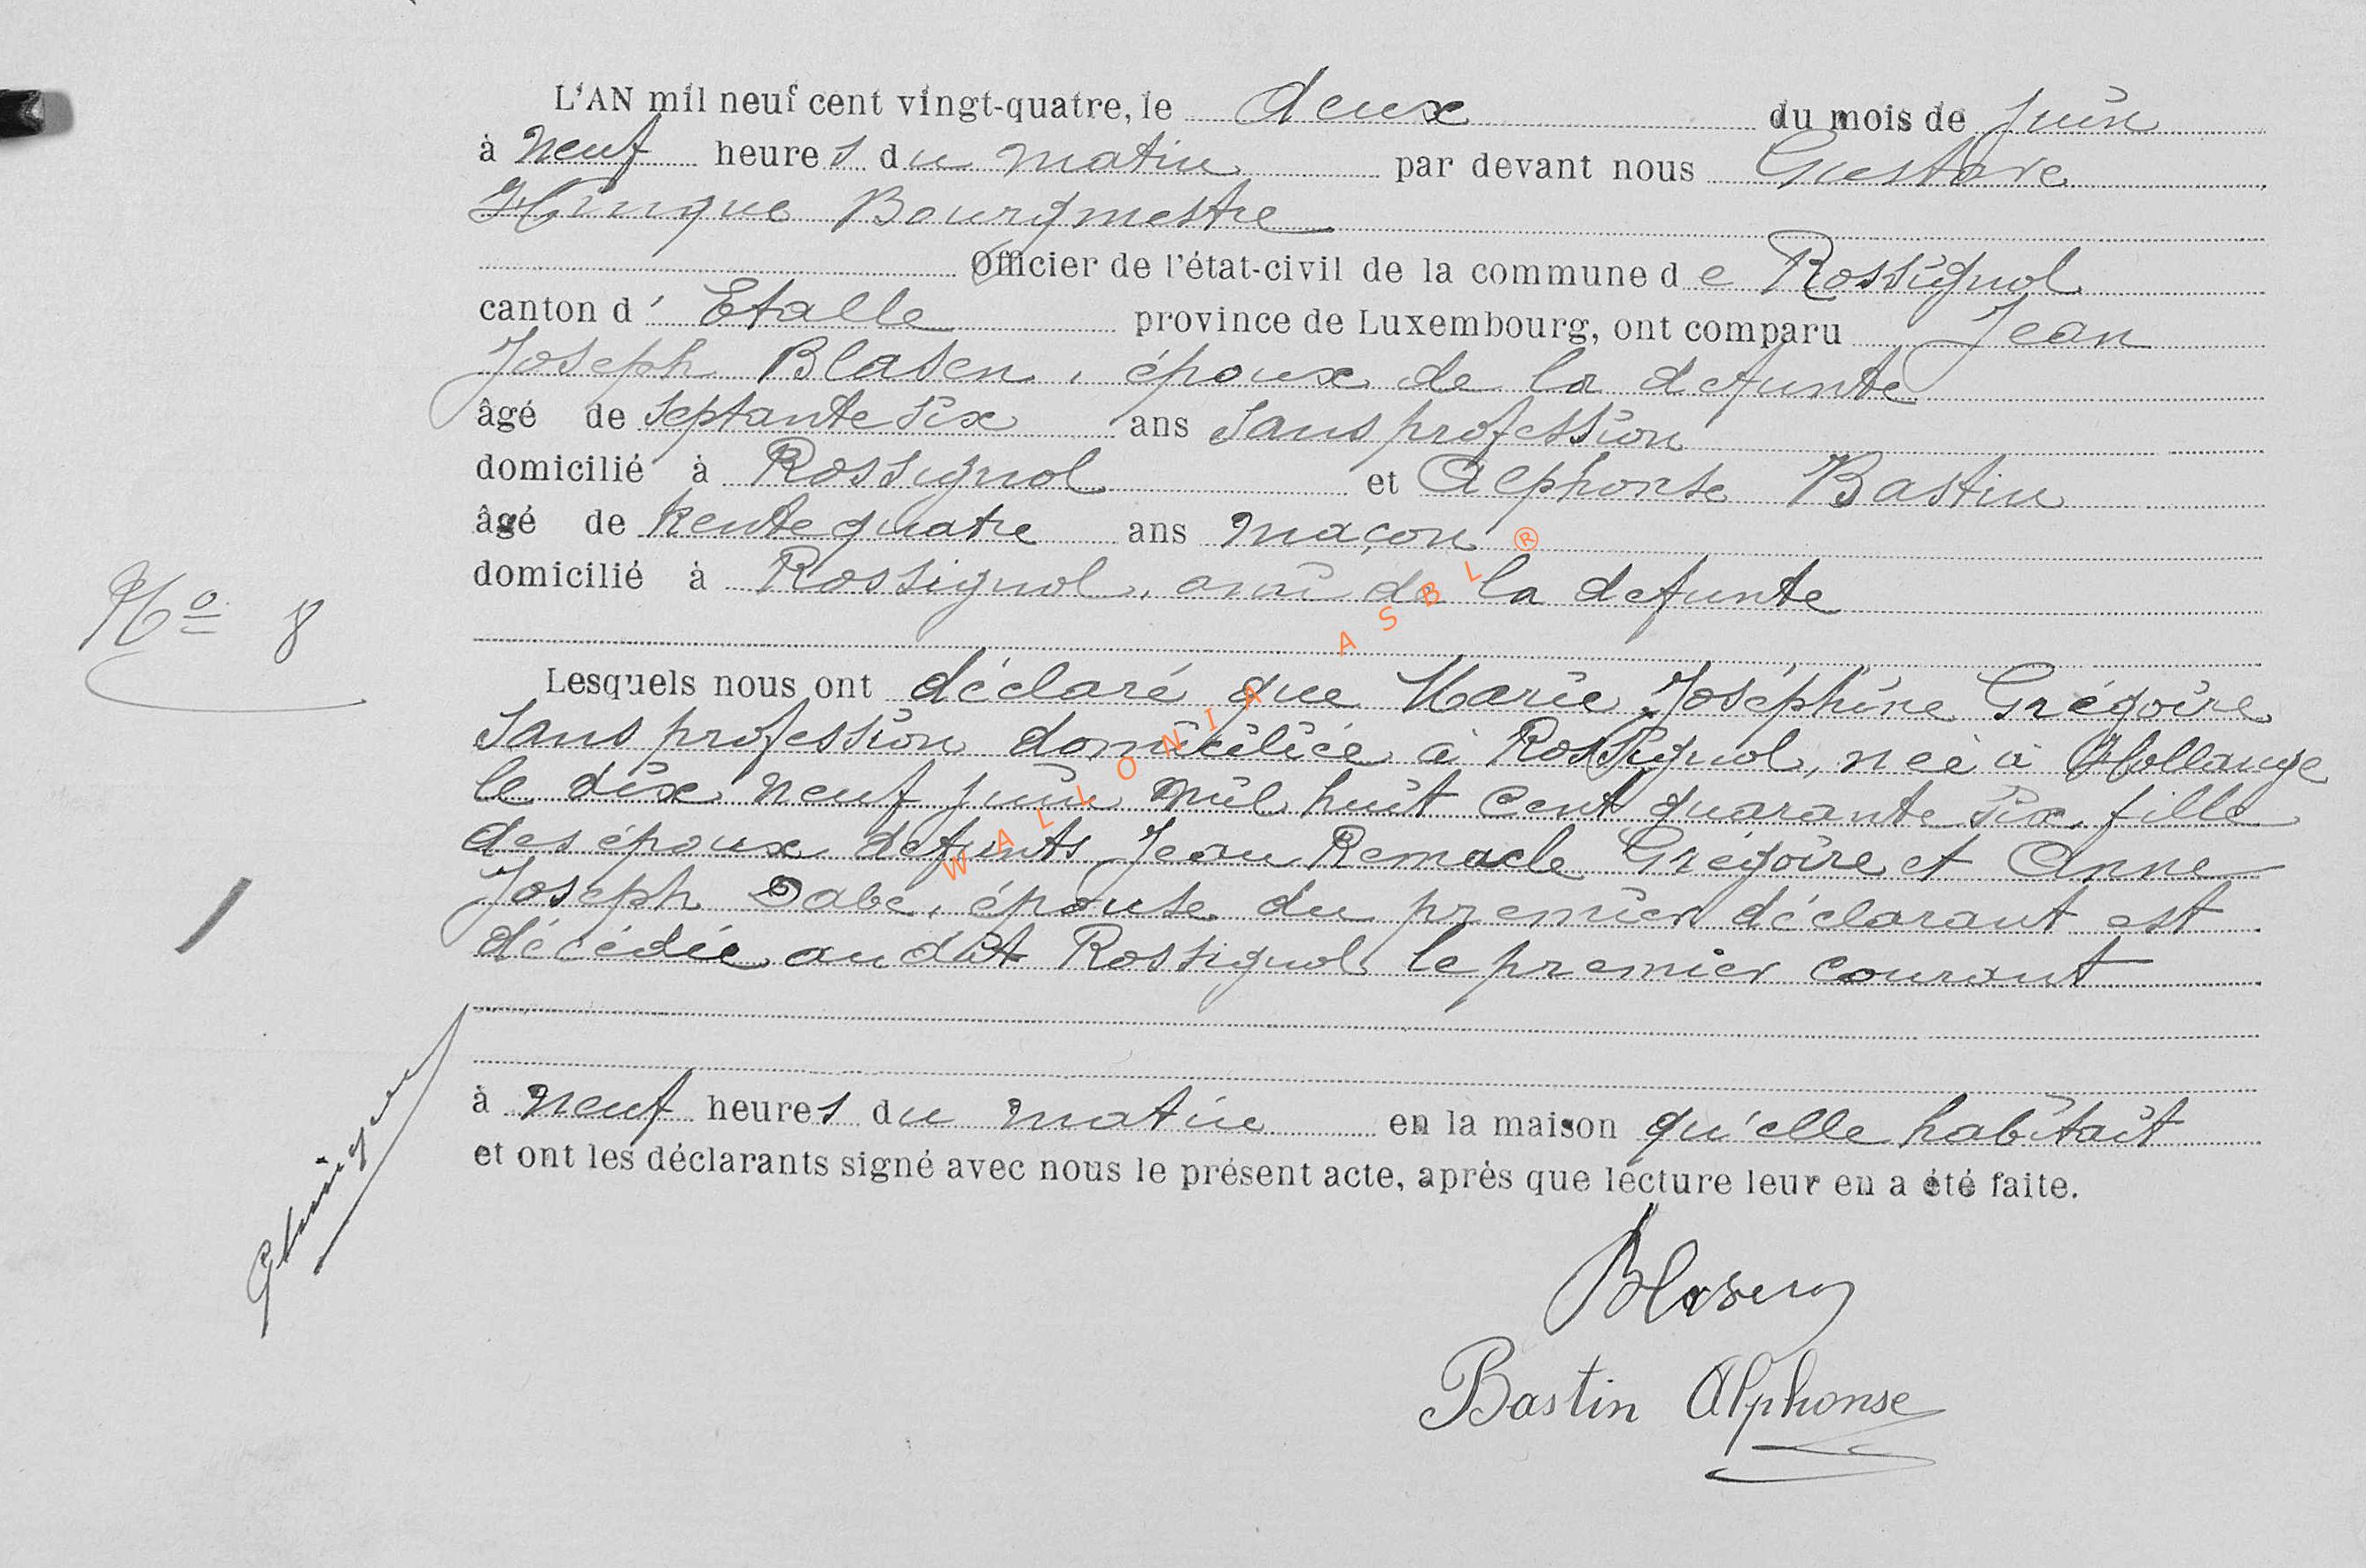 L'AN mil neuf cent vingt-quatre, le deux du mois de juin
à neuf heures du matin par devant nous Gustave
Hinque Bourgmestre
Officier de l'état-civil de la commune de Rossignol
canton d'Etalle province de Luxembourg, ont comparu Jean
Joseph Blasen, époux de la defunte
âgé de septante six ans sans profession
domicilié à Rossignol et Alphonse Bastin
âgé de trente quatre ans maçon
domicilié à Rossignol, ami de la defunte
No 8
Lesquels nous ont déclaré que Marie Joséphine Grégoire
sans profession domiciliée à Rossignol, née à Hollange
le dix neuf juin mil huit cent quarante six, fille
des époux defunts Jean Remacle Grégoire et Anne
Joseph Dabe, épouse du premier déclarant est
décédée audit Rossignol le premier courant
à neuf heures du matin en la maison qu'elle habitait
et ont les déclarants signé avec nous le présent acte, après que lecture leur en a été faite.
Blasen
Bastin Alphonse
WALLONIA ASBL ®